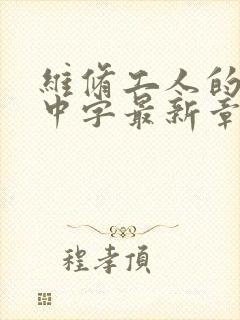 維脩工人的
中字最新章
程孝頂